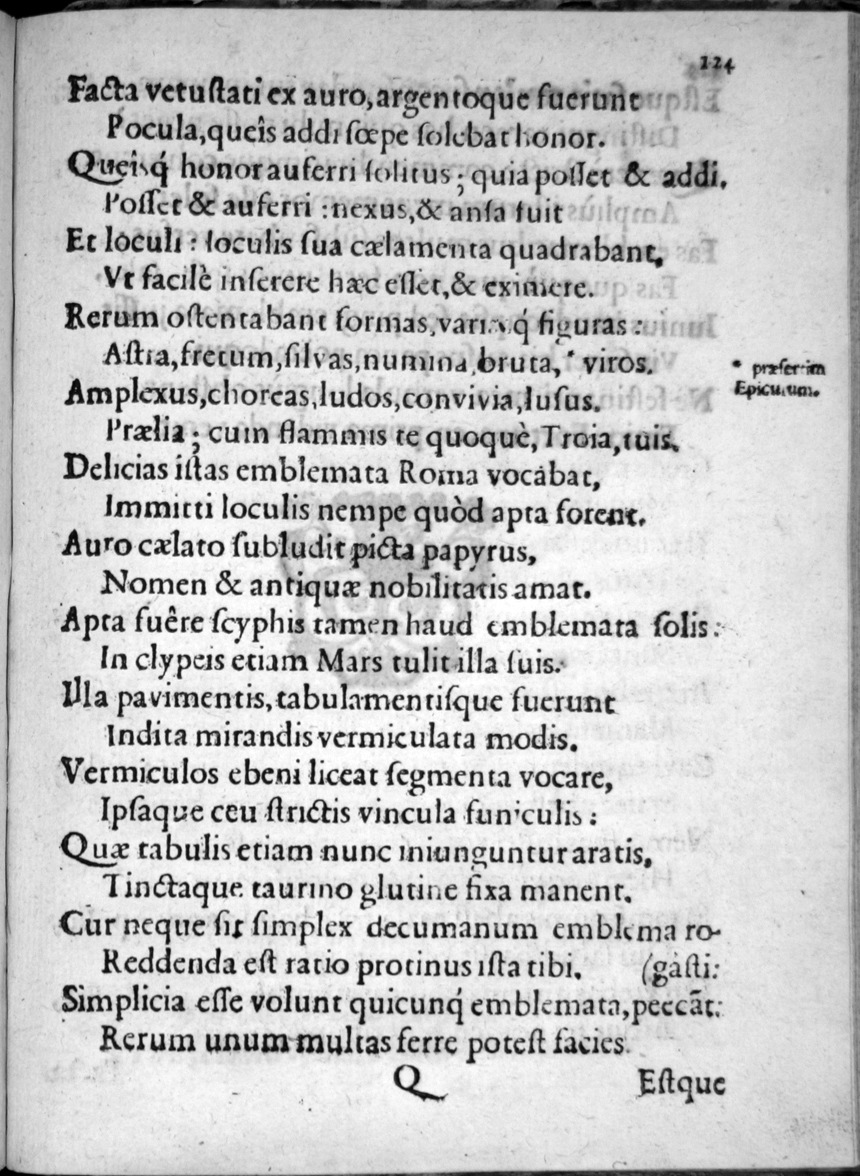 124
Facta vetuſtati ex auro, argentoque fuerunt
Pocula, queîs addi ſœpe ſolebat honor.
Queiſq́ honor auferri ſolitus; quia poſſet & addi.
Poſſet & auferri: nexus, & anſa fuit
Et loculi: loculis ſua cælamenta quadrabant,
Vt facilè inſerere hæc eſſet, & eximere.
Rerum oſtentabant formas, variasq́ figuras:
Aſtra, fretum, ſilvas, numina, bruta, * viros.
* præſertim
Epicurum.
Amplexus, choreas, ludos, convivia, luſus.
Prælia; cum flammis te quoquè, Troia, tuis.
Delicias iſtas emblemata Roma vocabat,
Immitti loculis nempe quòd apta forent.
Auro cælato ſubludit picta papyrus,
Nomen & antiquæ nobilitatis amat.
Apta fuêre ſcyphis tamen haud emblemata ſolis:
In clypeis etiam Mars tulit illa ſuis.
Illa pavimentis, tabulamentiſque fuerunt
Indita mirandis vermiculata modis.
Vermiculos ebeni liceat ſegmenta vocare,
Ipſaque ceu ſtrictis vincula funiculis:
Quæ tabulis etiam nunc iniunguntur aratis,
Tinctaque taurino glutine fixa manent.
Cur neque ſit ſimplex decumanum emblema ro-
Reddenda eſt ratio protinus iſta tibi. (gaſti:
Simplicia eſſe volunt quicunq́ emblemata, peccāt:
Rerum unum multas ferre poteſt facies.
Q Eſtque